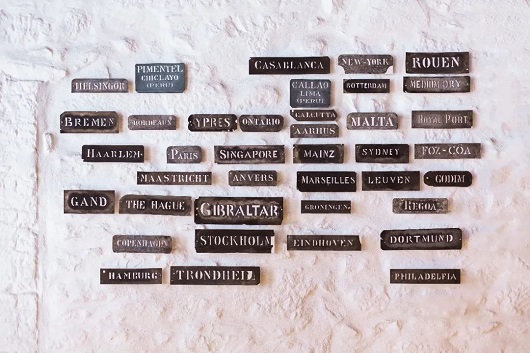 CASABLANCA
NEW-YORK
ROUEN
PIMENTEL
CHICLAYO
(PERU)
HELSINGOR
CALLAO
LIMA
(PERU)
ROTTERDAM
MEDIUM-DRY
BREMEN
BORDEAUX
YPRES
ONTARIO
CALCUTTA
AARHUS
MALTA
ROYAL PORT.
HAARLEM
PARIS
SINGAPORE
MAINZ
SYDNEY
FOZ-COA
MAASTRICHT
ANVERS
MARSEILLES
LEUVEN
GODIM
GAND
THE HAGUE
GIBRALTAR
GRONINGEN.
REGOA
COPENHAGEN
STOCKHOLM
EINDHOVEN
DORTMUND
HAMBURG
TRONDHEIM
PHILADELFIA